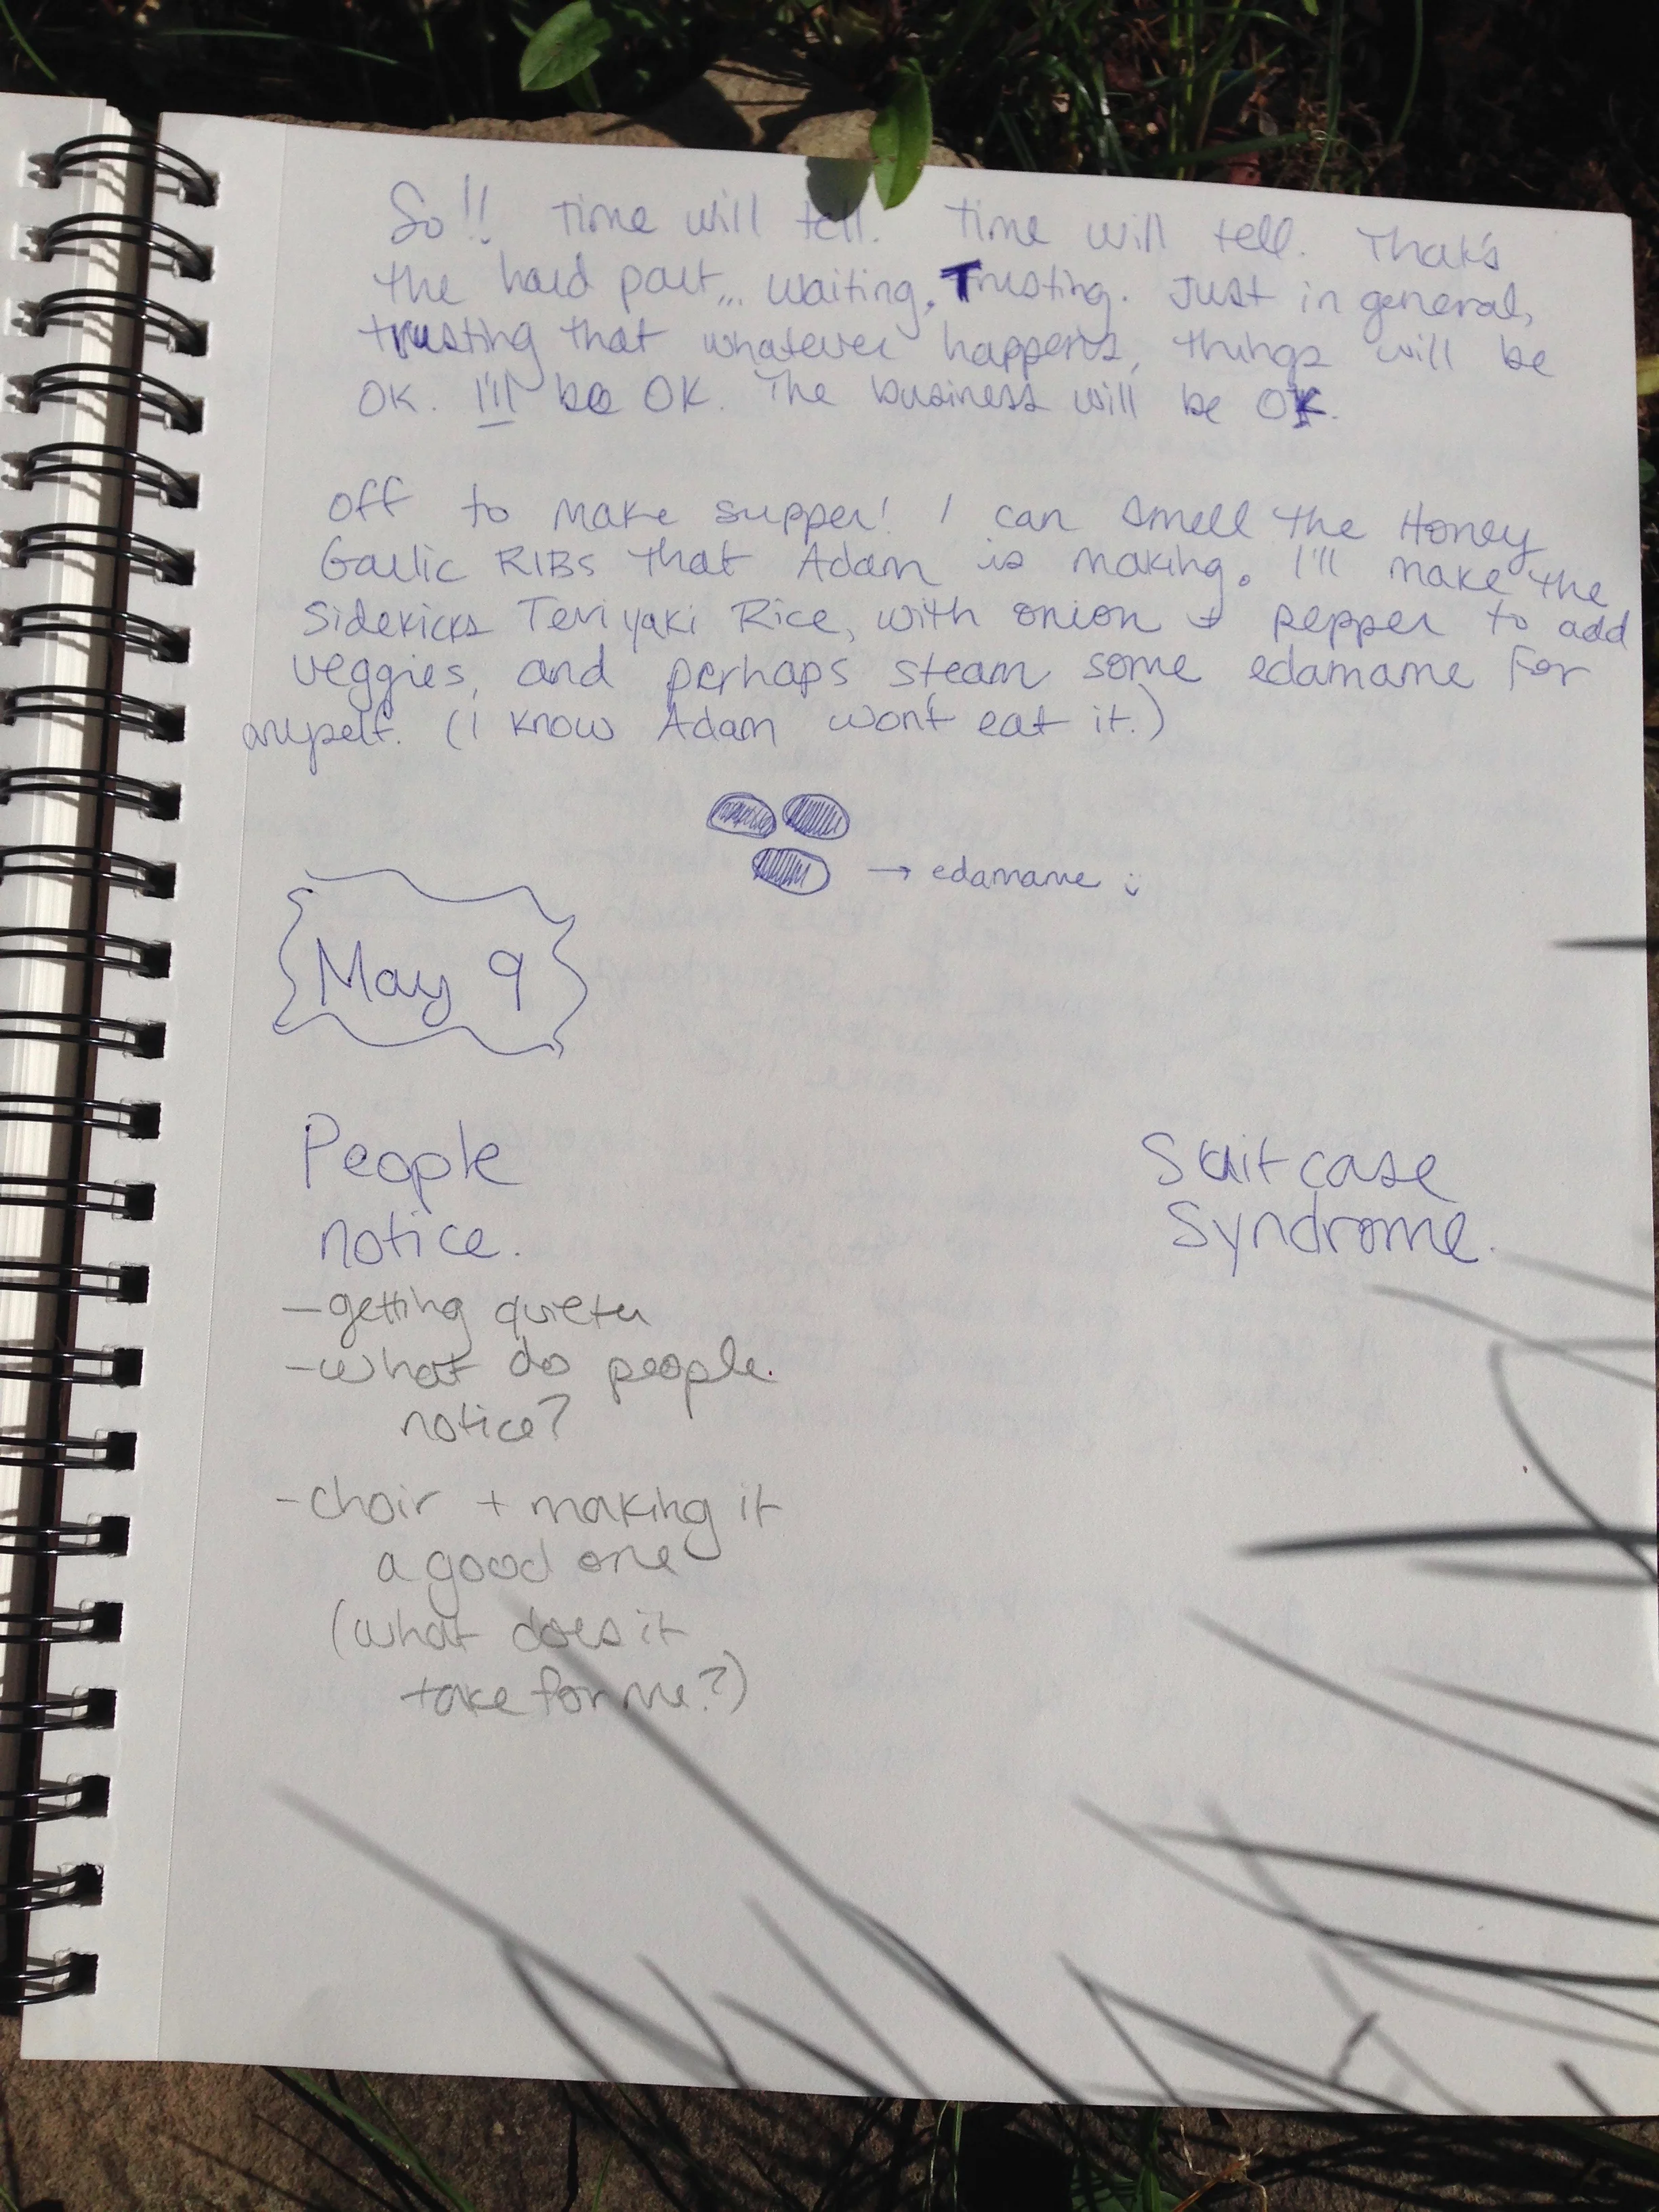 So!! Time will tell. Time will tell. That's
the hard part... waiting. Trusting. Just in general,
trusting that whatever happens, things will be
OK. I'll be OK. The business will be OK.
Off to make supper! I can smell the Honey
Garlic RIBs that Adam is making. I'll make the
Sidekicks Teriyaki Rice, with onion + pepper to add
veggies, and perhaps steam some edamame for
myself. (I know Adam won't eat it.)
→ edamame :)
May 9
People
notice.
- getting quieter
- what do people
notice?
- choir + making it
a good one
(what does it
take for me?)
Suitcase
Syndrome.